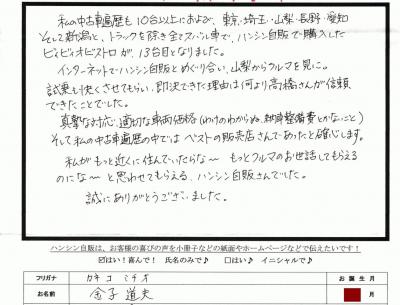 私の中古車遍歴も10台以上におよび、東京・埼玉・山梨・長野・愛知
そして新潟と、トラックを除き全てスバル車で、ハンシン自販で購入した
ビィビィオビストロが、13台目となりました。
インターネットでハンシン自販とめぐり会い、山梨からクルマを見に。
試乗も快くさせてもらい、即決できた理由は何より高橋さんが信頼
できたことでした。
真摯な対応・適切な車両価格(わけのわからぬ、納車整備費とかないこと)
そして私の中古車遍歴の中ではベストの販売店さんであったと確心します。
私がもっと近くに住んでいたらな〜 もっとクルマのお世話してもらえる
のにな〜と思わせてもらえる、ハンシン自販さんでした。
誠にありがとうございました。
ハンシン自販は、お客様の喜びの声を小冊子などの紙面やホームページなどで伝えたいです!
☑はい!喜んで! 氏名のみで♪ □はい♪ イニシャルで♪
フリガナ カネコ ミチオ お誕生月
お名前 金子 道夫 月